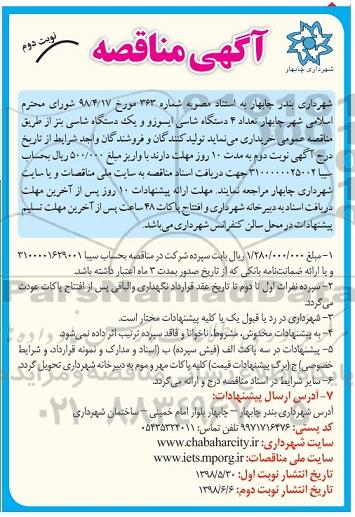 آگهی مناقصه
نوبت دوم
شهرداری چابهار
شهرداری بندر چابهار به استناد مصوبه شماره ۳۶۳ مورخ ۹۸/۴/۱۷ شورای محترم
اسلامی شهر چابهار تعداد ۴ دستگاه شاسی ایسوزو و یک دستگاه شاسی بنز از طریق
مناقصه عمومی خریداری می‌نماید تولیدکنندگان و فروشندگان واجد شرایط از تاریخ
درج آگهی نوبت دوم به مدت ۱۰ روز مهلت دارند با واریز مبلغ ۵۰۰/۰۰۰ ریال بحساب
سیبا ۳۱۰۰۰۰۰۲۵۰۰۲ جهت دریافت اسناد مناقصه به سایت ملی مناقصات و یا سایت
شهرداری چابهار مراجعه نمایند. مهلت ارائه پیشنهادات ۱۰ روز پس از آخرین مهلت
دریافت اسناد به دبیرخانه شهرداری و افتتاح پاکات ۴۸ ساعت پس از آخرین مهلت تسلیم
پیشنهادات در محل سالن کنفرانس شهرداری می‌باشد.
۱- مبلغ ۱/۲۸۰/۰۰۰/۰۰۰ ریال بابت سپرده شرکت در مناقصه بحساب سیبا ۳۱۰۰۰۰۱۶۲۹۰۰۱
و یا ارائه ضمانت‌نامه بانکی که از تاریخ صدور بمدت ۳ ماه اعتبار داشته باشد.
۲- سپرده نفرات اول تا دوم تا تاریخ عقد قرارداد نگهداری والباقی پس از افتتاح پاکات عودت
می‌گردد.
۳- شهرداری در رد یا قبول یک یا کلیه پیشنهادات مختار است.
۴- به پیشنهادات مخدوش، مشروط، ناخوانا و فاقد سپرده ترتیب اثر داده نمی‌شود.
۵- پیشنهادات در سه پاکت الف (فیش سپرده) ب (اسناد و مدارک و نمونه قرارداد، و شرایط
خصوصی) ج (برگ پیشنهادات قیمت) کلیه پاکات مهر و موم به دبیرخانه شهرداری تحویل گردد.
۶- سایر شرایط در اسناد مناقصه درج و ارائه می‌گردد.
۷- آدرس ارسال پیشنهادات:
آدرس شهرداری بندر چابهار – چابهار بلوار امام خمینی – ساختمان شهرداری
کد پستی: ۹۹۷۱۷۱۶۴۷۶ تلفن تماس: ۰۵۴۳۵۳۲۴۰۱۱
سایت شهرداری: www.chabaharcity.ir
سایت ملی مناقصات: www.iets.mporg.ir
تاریخ انتشار نوبت اول: ۱۳۹۸/۵/۳۰
تاریخ انتشار نوبت دوم: ۱۳۹۸/۶/۶